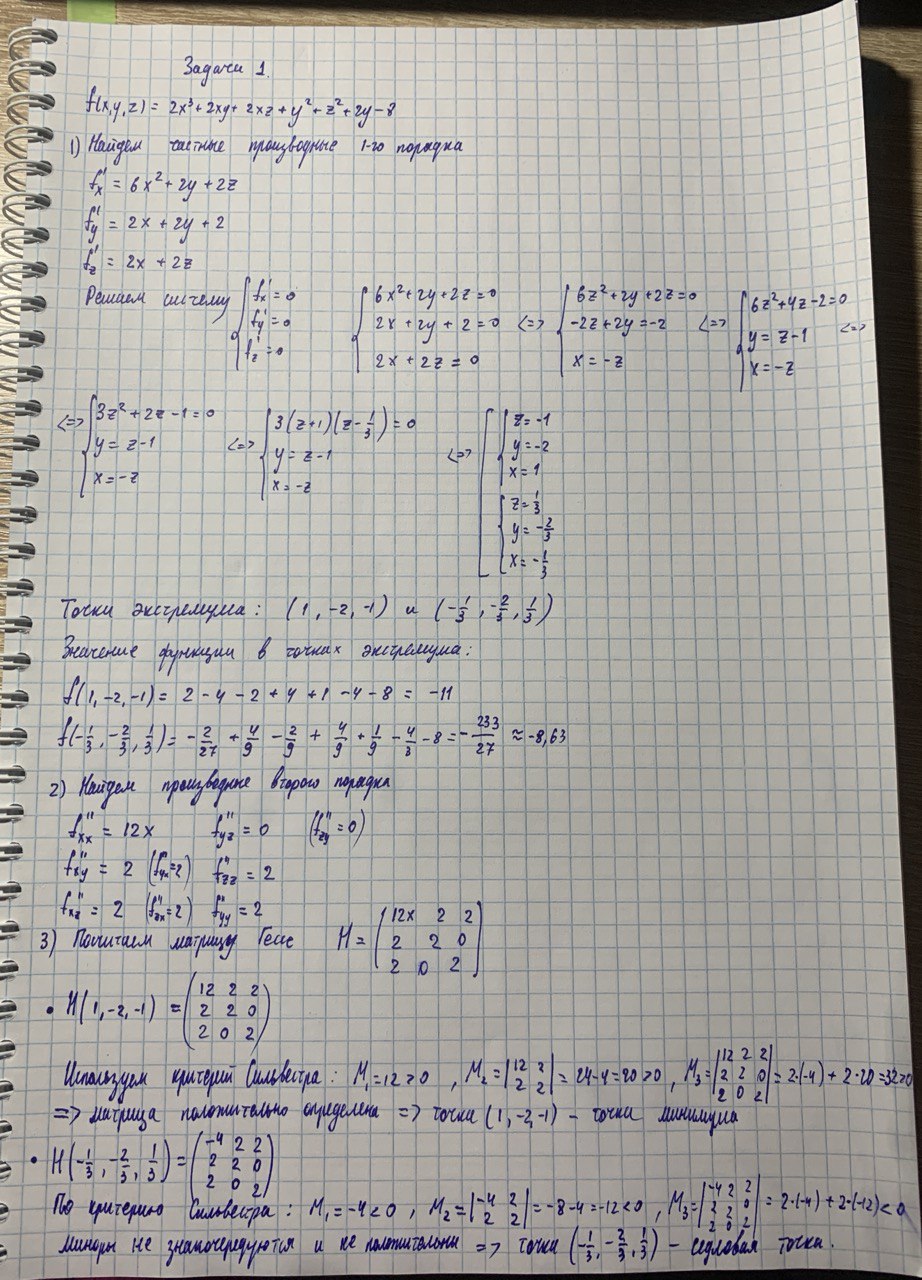 Задача 1.
f(x,y,z) = 2x³ + 2xy + 2xz + y² + z² + 2y - 8
1) Найдем частные производные 1-го порядка
f'x = 6x² + 2y + 2z
f'y = 2x + 2y + 2
f'z = 2x + 2z
Решаем систему { f'x = 0; f'y = 0; f'z = 0 { 6x² + 2y + 2z = 0; 2x + 2y + 2 = 0; 2x + 2z = 0 <=> { 6z² + 2y + 2z = 0; -2z + 2y = -2; x = -z <=> { 6z² + 4z - 2 = 0; y = z - 1; x = -z <=>
<=> { 3z² + 2z - 1 = 0; y = z - 1; x = -z <=> { 3(z+1)(z - 1/3) = 0; y = z - 1; x = -z <=> [ { z = -1; y = -2; x = 1 { z = 1/3; y = -2/3; x = -1/3
Точки экстремума: (1, -2, -1) и (-1/3, -2/3, 1/3)
Значение функции в точках экстремума:
f(1, -2, -1) = 2 - 4 - 2 + 4 + 1 - 4 - 8 = -11
f(-1/3, -2/3, 1/3) = -2/27 + 4/9 - 2/9 + 4/9 + 1/9 - 4/3 - 8 = -233/27 ≈ -8,63
2) Найдем производные второго порядка
f''xx = 12x f''yz = 0 (f''zy = 0)
f''xy = 2 (f''yx = 2) f''zz = 2
f''xz = 2 (f''zx = 2) f''yy = 2
3) Посчитаем матрицу Гессе H = (12x 2 2; 2 2 0; 2 0 2)
• H(1, -2, -1) = (12 2 2; 2 2 0; 2 0 2)
Используем критерий Сильвестра: M₁ = 12 > 0, M₂ = |12 2; 2 2| = 24 - 4 = 20 > 0, M₃ = |12 2 2; 2 2 0; 2 0 2| = 2·(-4) + 2·20 = 32 > 0
=> матрица положительно определена => точка (1, -2, -1) - точка минимума
• H(-1/3, -2/3, 1/3) = (-4 2 2; 2 2 0; 2 0 2)
По критерию Сильвестра: M₁ = -4 < 0, M₂ = |-4 2; 2 2| = -8 - 4 = -12 < 0, M₃ = |-4 2 2; 2 2 0; 2 0 2| = 2·(-4) + 2·(-12) < 0
Миноры не знакочередуются и не положительны => точка (-1/3, -2/3, 1/3) - седловая точка.